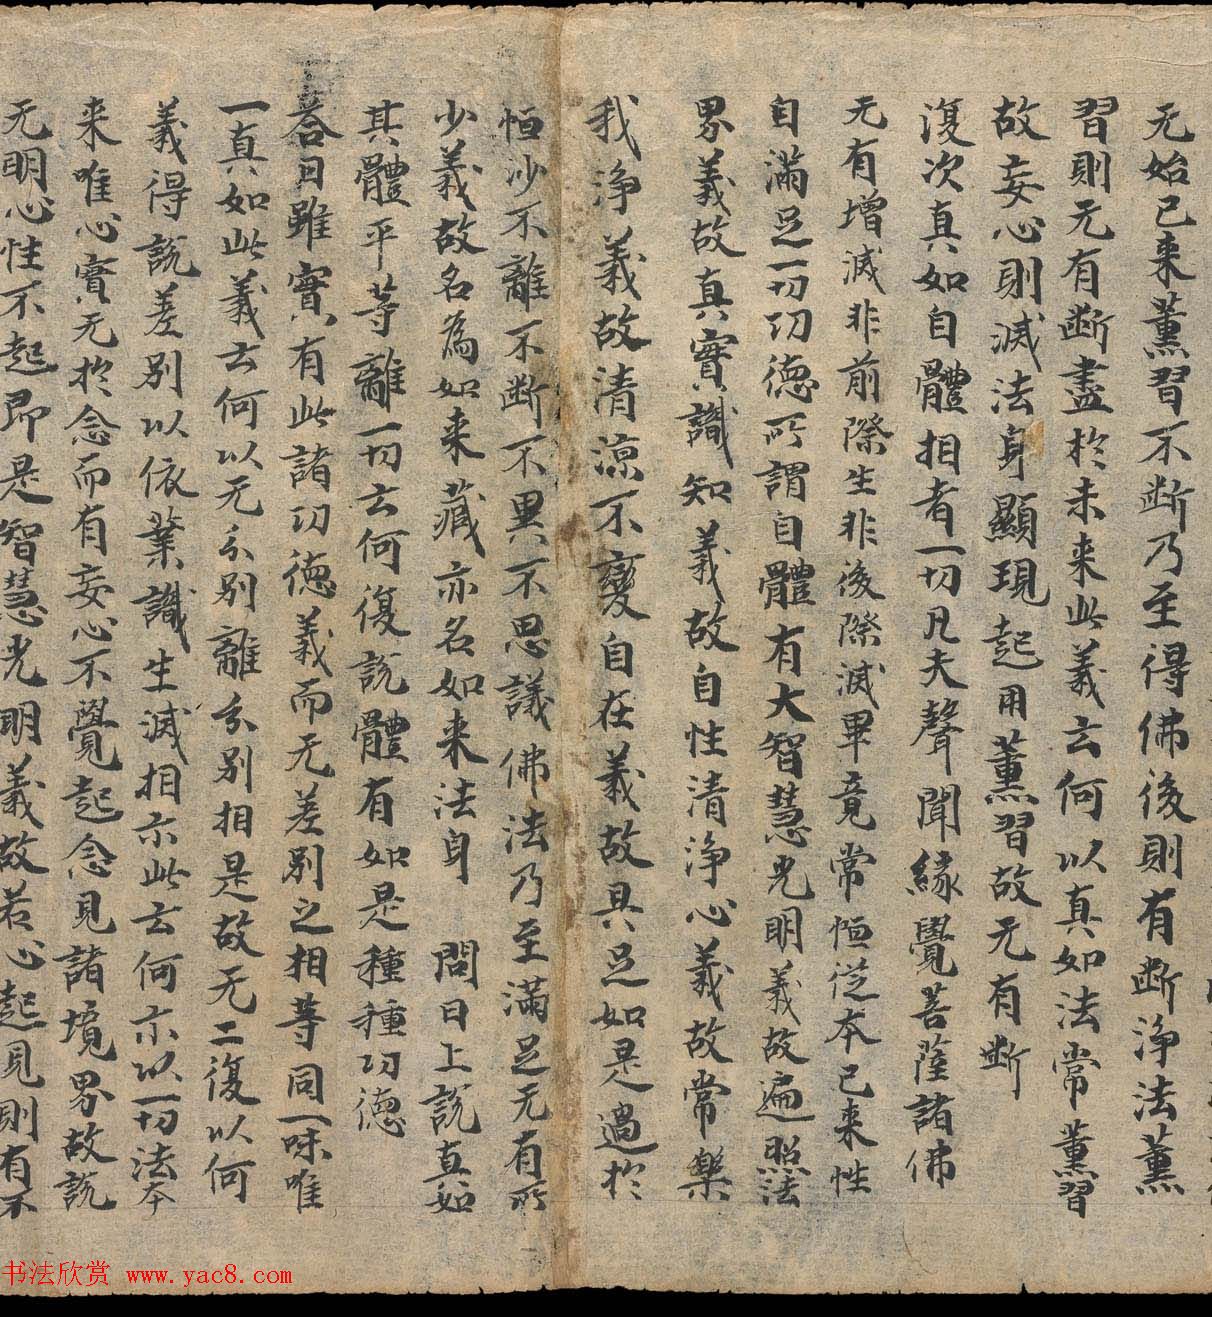 无始已来薰習不断乃至得佛後則有断淨法薰
習則无有断盡於未来此義云何以真如法常薰習
故妄心則滅法身顯現起用薰習故无有断
復次真如自體相者一切凡夫聲聞緣覺菩薩諸佛
无有增減非前際生非後際滅畢竟常恒從本已来性
自滿足一切功德所謂自體有大智慧光明義故遍照法
界義故真實識知義故自性清淨心義故常樂
我淨義故清凉不變自在義故具足如是過於
恒沙不離不断不異不思議佛法乃至滿足无有所
少義故名為如来藏亦名如来法身 問曰上說真如
其體平等離一切云何復說體有如是種種功德
荅曰雖實有此諸功德義而无差別之相等同一味唯
一真如此義云何以无分別離分別相是故无二復以何
義得說差別以依業識生滅相示此云何示以一切法本
来唯心實无於念而有妄心不覺起念見諸境界故說
无明心性不起即是智慧光明義故若心起見則有不
书法欣赏 www.yac8.com